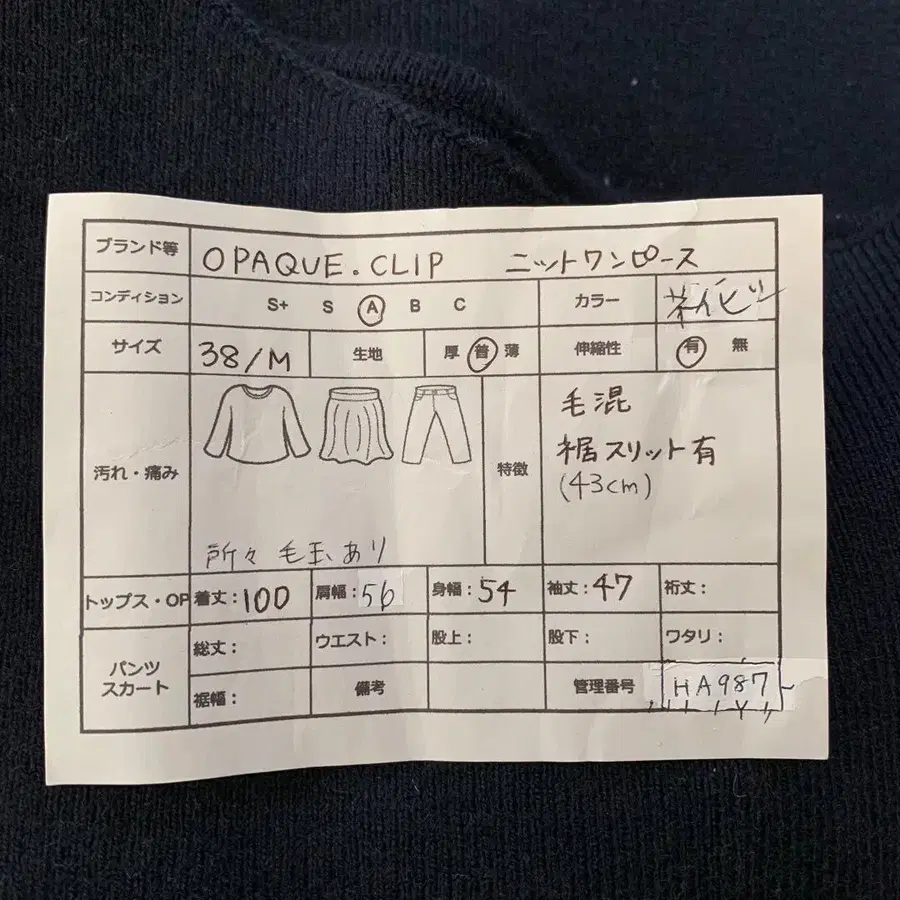 ブランド等 OPAQUE.CLIP ニットワンピース
コンディション S+ S A B C カラー
サイズ 38/M 生地 厚 普 薄 伸縮性 有 無
汚れ・痛み 所々 毛玉あり
特徴 毛混
裾スリット有
(43cm)
トップス・OP 着丈:100 肩幅:56 身幅:54 袖丈:47 裄丈:
パンツ
スカート
総丈: ウエスト: 股上: 股下: ワタリ:
裾幅: 備考 管理番号 HA987